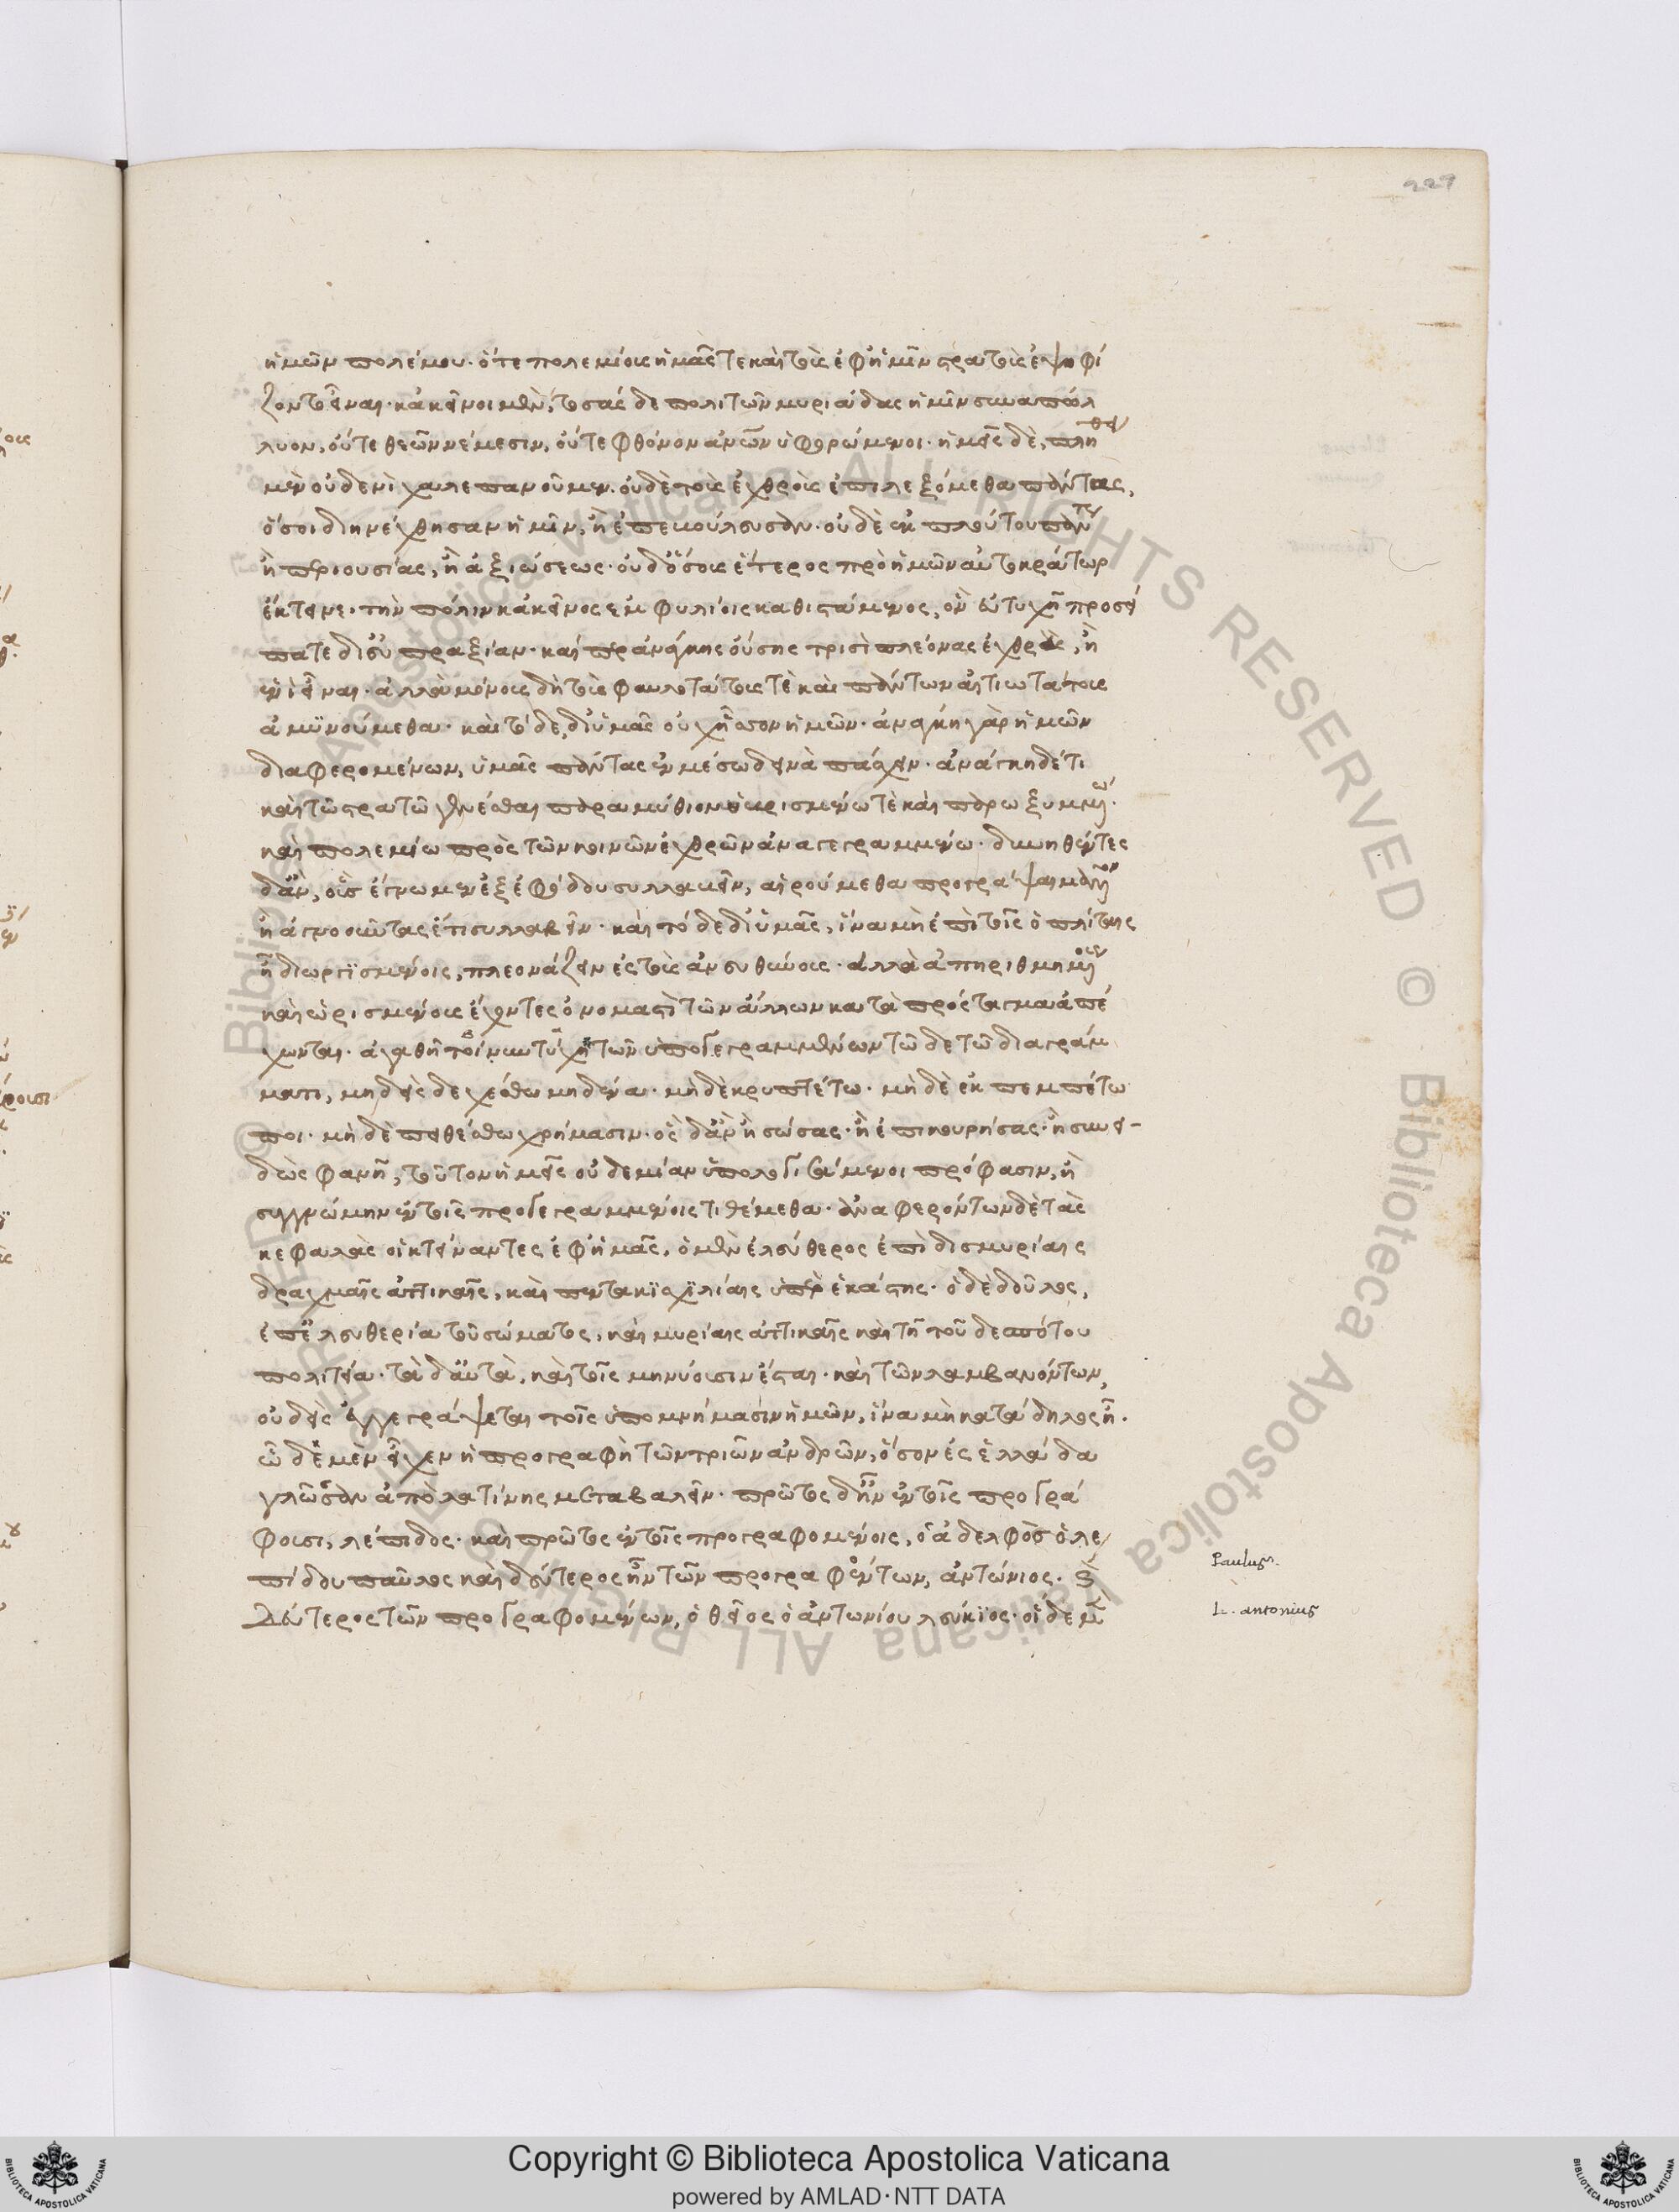 227
ἡμῶν πολέμου· ὅτε πολεμίους ἡμᾶς τε καὶ τοὺς ἐφ' ἡμῖν στρατοὺς ἐψηφί
ζοντο εἶναι· κἀκεῖνοι μὲν, τοσάσδε πολιτῶν μυριάδας ἡμῖν συναπώλ
λυον, οὔτε θεῶν νέμεσιν, οὔτε φθόνον ἀνων ὑφορώμενοι· ἡμεῖς δὲ, πλήθει
μὲν οὐδενὶ χαλεπανοῦμεν. οὐδὲ τοὺς ἐχθροὺς ἐπιλεξόμεθα πάντας,
ὅσοι διηνέχθησαν ἡμῖν, ἢ ἐπεβούλευσαν· οὐδὲ ἐκ πλούτου πάντως
ἢ περιουσίας, ἢ ἀξιώσεως· οὐδ' ὅσους ἕτερος πρὸ ἡμῶν αὐτοκράτωρ
ἔκτεινε· τὴν πόλιν κἀκεῖνος ἐμφυλίοις καθιστάμενος, ὃν εὐτυχῆ προσεί
πατε δι' εὐπραξίαν· καὶ περ ἀνάγκης οὔσης τρισὶ πλέονας ἐχθροὺς, ἢ
ἑνὶ εἶναι· ἀλλὰ μόνους δὴ τοὺς φαυλοτάτους τὲ καὶ πάντων αἰτιωτάτους
ἀμυνούμεθα· καὶ τόδε, δι' ὑμᾶς οὐχ ἧσσον ἡμῶν· ἀνάγκη γὰρ ἡμῶν
διαφερομένων, ὑμᾶς πάντας ἐν μέσω δεινὰ πάσχειν· ἀνάγκη δέ τι
καὶ τῶ στρατῶ γενέσθαι παραμύθιον ὑβρισμένω τὲ καὶ παρωξυμμένω·
καὶ πολεμίω πρὸς τῶν κοινῶν ἐχθρῶν ἀναγεγραμμένω· δυνηθέντες
δ' ἂν, οὓς ἔγνωμεν ἐξ ἐφόδου συλλαβεῖν, αἱρούμεθα προγράψαι μᾶλλον
ἢ ἀγνοοῦντας ἔτι συλλαβεῖν· καὶ τόδε δι' ὑμᾶς, ἵνα μὴ ἐπὶ τοῖς ὁπλίταις
ᾖ διωργισμένοις, πλεονάζειν ἐς τοὺς ἀνευθύνους· ἀλλὰ ἀπηριθμημένους
καὶ ὡρισμένους ἔχοντες ὀνομαστὶ τῶν ἄλλων κατὰ πρόσταγμα ἀπέ
χωνται· ἀγαθῆ τοίνυν τύχη τῶν ὑπογεγραμμένων τῶδε τῶ διαγράμ
ματι, μηδεὶς δεχέσθω μηδένα· μὴ δὲ κρυπτέτω· μὴ δὲ ἐκπεμπέτω
ποι· μὴ δὲ πειθέσθω χρήμασιν· ὃς δ' ἂν ἢ σώσας· ἢ ἐπικουρήσας· ἢ συνει-
δὼς φανῆ, τοῦτον ἡμεῖς οὐδεμίαν ὑπολογισάμενοι πρόφασιν, ἢ
συγγνώμην ἐν τοῖς προγεγραμμένοις τιθέμεθα· ἀναφερόντων δὲ τὰς
κεφαλὰς οἱ κτείναντες ἐφ' ἡμᾶς, ὁ μὲν ἐλεύθερος ἐπὶ δισμυρίαις
δραχμαῖς ἀττικαῖς, καὶ πεντακισχιλίαις ὑπὲρ ἑκάστης· ὁ δὲ δοῦλος,
ἐπ' ἐλευθερία τοῦ σώματος, καὶ μυρίαις ἀττικαῖς καὶ τῆ τοῦ δεσπότου
πολιτεία· τὰ δ' αὐτὰ, καὶ τοῖς μηνύουσιν ἔσται· καὶ τῶν λαμβανόντων,
οὐδεὶς ἐγγεγράψεται τοῖς ὑπομνήμασιν ἡμῶν, ἵνα μὴ κατάδηλος ᾖ·
ὧδε μὲν εἶχεν ἡ προγραφὴ τῶν τριῶν ἀνδρῶν, ὅσον ἐς ἑλλάδα
γλῶσσαν ἀπὸ λατίνης μεταβαλεῖν· πρῶτος δ' ἦν ἐν τοῖς προγρά
φουσι, λέπιδος· καὶ πρῶτος ἐν τοῖς προγραφομένοις, ὁ ἀδελφὸς ὁ λε
πίδου παῦλος καὶ δεύτερος ἦν τῶν προγραφόντων, ἀντώνιος· καὶ
Δεύτερος τῶν προγραφομένων, ὁ θεῖος ὁ ἀντωνίου λεύκιος· οἵδε μὲν
Paulus.
L. antonius
Copyright © Biblioteca Apostolica Vaticana
powered by AMLAD·NTT DATA
© Biblioteca Apostolica Vaticana ALL RIGHTS RESERVED © Biblioteca Apostolica Vaticana ALL RIGHTS RESERVED